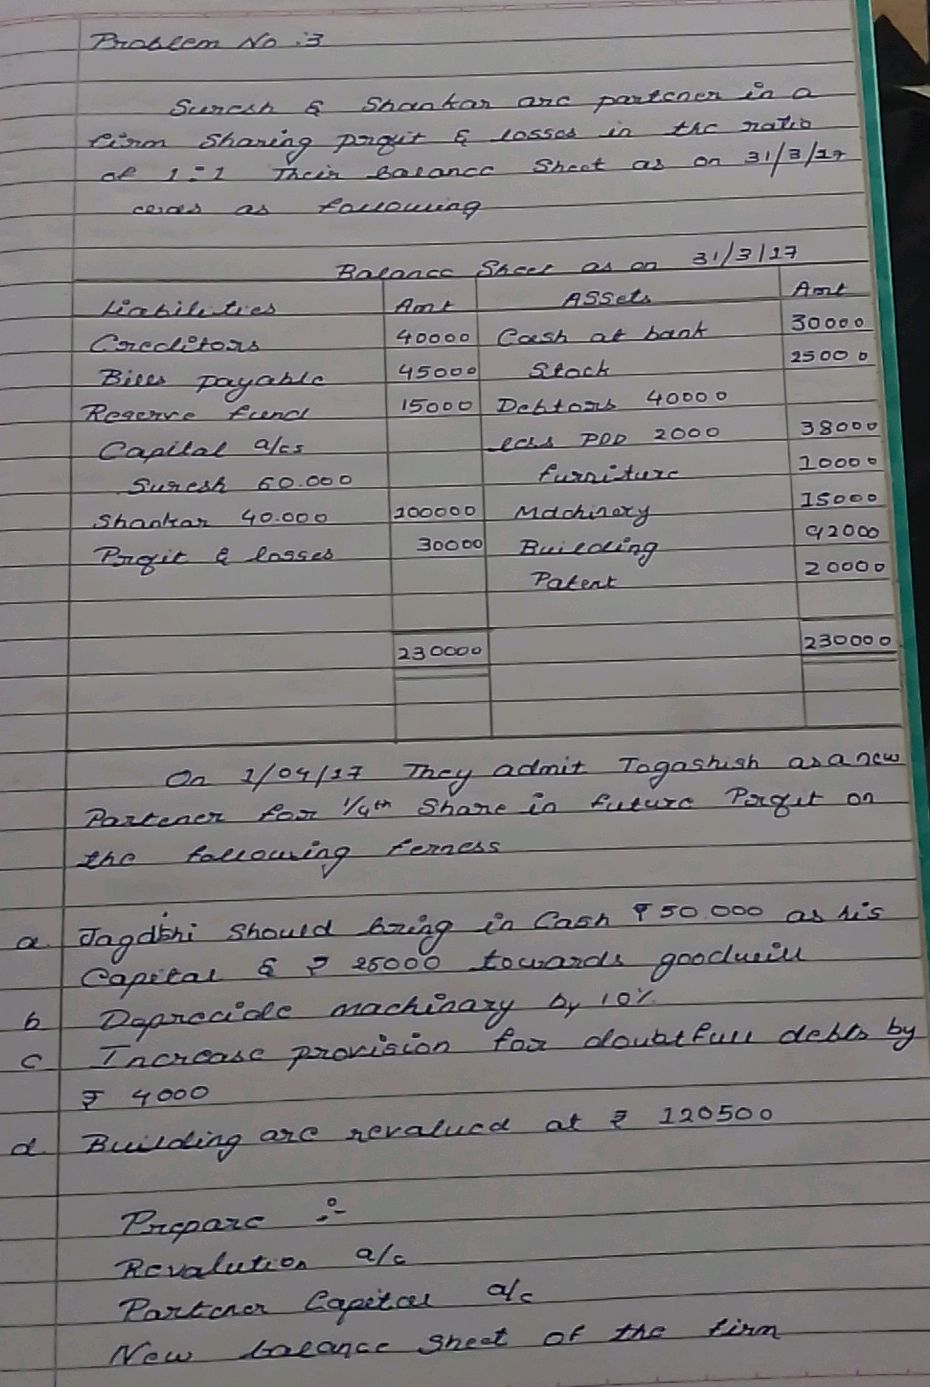 Problem No :3
Suresh & Shankar are partener in a
firm sharing profit & losses in the ratio
of 1:1 Their Balance Sheet as on 31/3/17
as following
Balance Sheet as on 31/3/17
Liabilities Amt ASSets Amt
Creditors 40000 Cash at bank 30000
Bills payable 45000 Stock 25000
Reserve fund 15000 Debtors 40000
Capital a/cs less PDD 2000 38000
Suresh 60.000 furniture 10000
Shankar 40.000 100000 Machinery 15000
Profit & losses 30000 Building 92000
Patent 20000
230000 230000
On 1/04/17 They admit Jagashish as a new
Partener for 1/4th Share in future Profit on
the following
a. Jagdshi Should bring in Cash ₹ 50.000 as his
Capital & ₹ 25000 towards goodwill
b Depreciate machinary by 10%
c Increase provision for doubtfull debts by
₹ 4000
d. Building are revalued at ₹ 120500
Prepare :-
Revalution a/c
Partener Capital a/c
New balance sheet of the firm